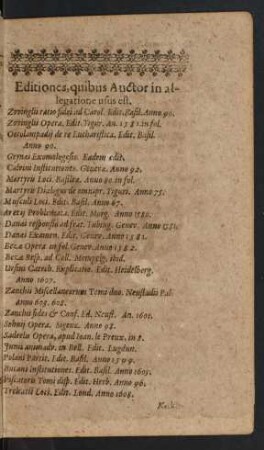 Editiones, quibus Auctor in al-
legatione usus est.
Zvvinglii ratio fidei ad Carol. Edit. Basil. Anno 90.
Zvvinglii Opera. Edit. Tigur. An. 1581. in fol.
Oecolampadij de re Eucharistica. Edit. Basil.
Anno 90.
Grynæi Exomologesis. Eadem edit.
Calvini Institutiones. Geneva. Anno 92.
Martyris Loci. Basileæ. Anno 80. in fol.
Martyris Dialogus de omnipr. Tiguri. Anno 75.
Musculi Loci. Edit. Basil. Anno 67.
Aretij Problemata. Edit. Morg. Anno
Danæi responsio ad frat. Tubing. Genev. Anno
Danæi Examen. Edit. Genev. Anno 1581.
Bezæ Opera in fol. Genev. Anno 1582.
Bezæ Resp. ad Coll. Mompelg. ibid.
Ursini Catech. Explicatio. Edit. Heidelberg.
Anno 1607.
Zanchii Miscellaneorum Tomi duo. Neustadii Pal.
Anno 603. 608.
Zanchii fides & Conf. Ed. Neust. An. 1601.
Sohnij Opera. Sigenæ. Anno 98.
Sadeelis Opera, apud Ioan. le Preux. in
Junij animadv. in Bell. Edit. Lugdun.
Polani Partit. Edit. Basil. Anno 1599.
Bucani institutiones. Edit. Basil. Anno 1605.
Piscatoris Tomi disp. Edit. Herb. Anno 96.
Trelcatii Loci. Edit. Lond. Anno 1608.